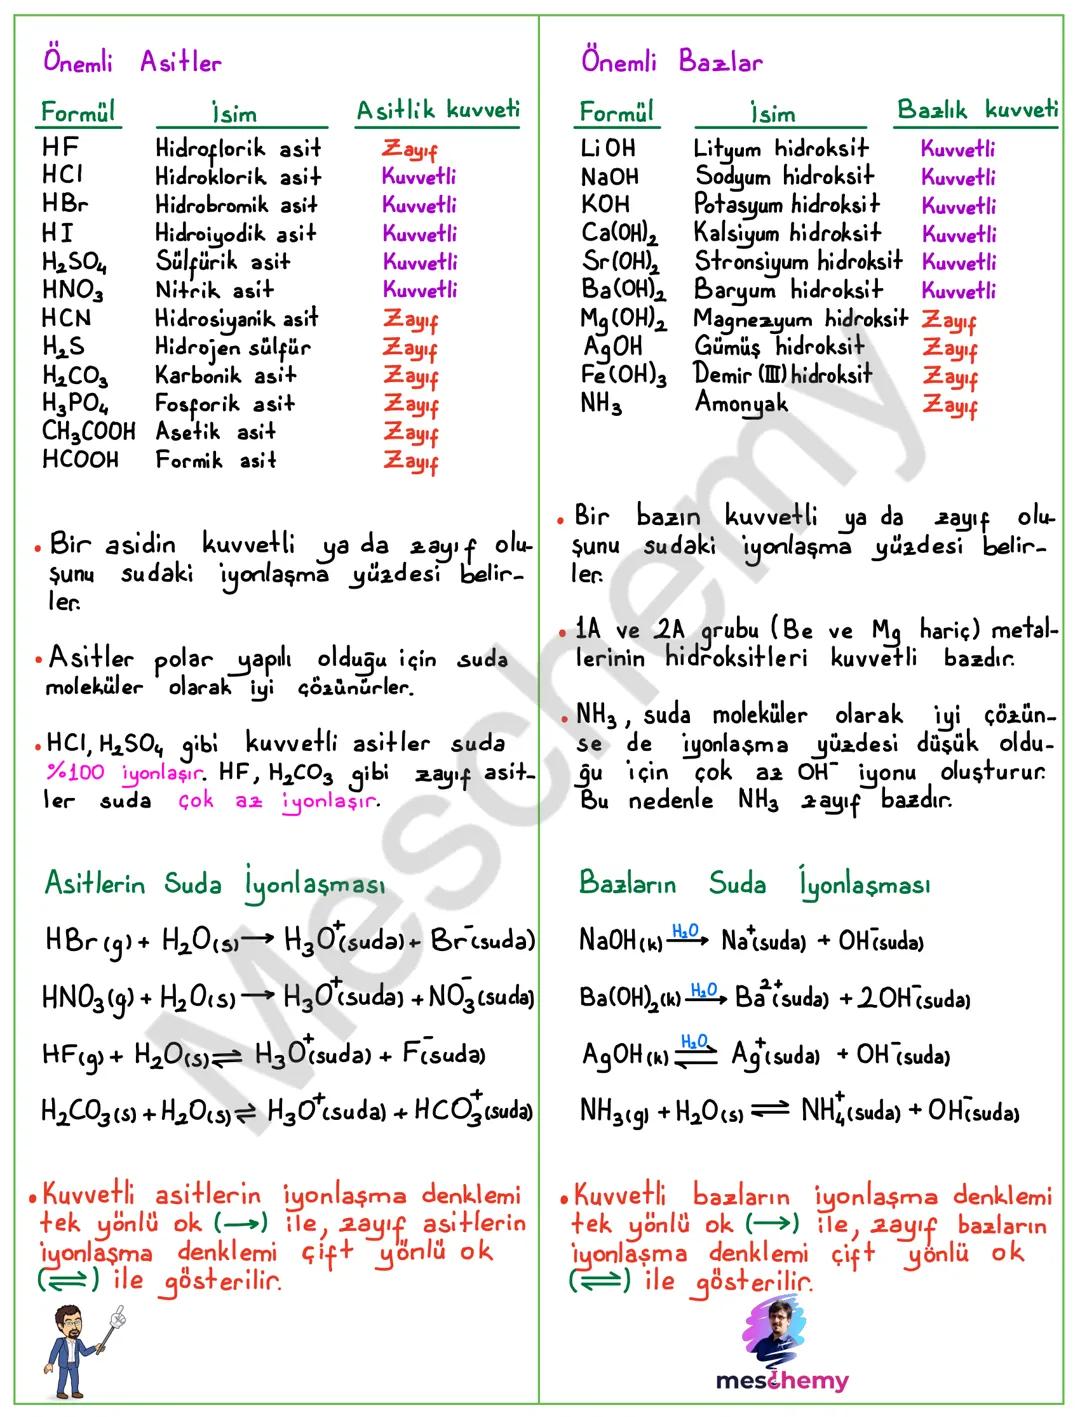 Önemli Asitler
Formül İsim Asitlik kuvveti
HF Hidroflorik asit Zayıf
HCl Hidroklorik asit Kuvvetli
HBr Hidrobromik asit Kuvvetli
HI Hidroiyodik asit Kuvvetli
H₂SO₄ Sülfürik asit Kuvvetli
HNO₃ Nitrik asit Kuvvetli
HCN Hidrosiyanik asit Zayıf
H₂S Hidrojen sülfür Zayıf
H₂CO₃ Karbonik asit Zayıf
H₃PO₄ Fosforik asit Zayıf
CH₃COOH Asetik asit Zayıf
HCOOH Formik asit Zayıf
• Bir asidin kuvvetli ya da zayıf olu-
şunu sudaki iyonlaşma yüzdesi belir-
ler.
• Asitler polar yapılı olduğu için suda
moleküler olarak iyi çözünürler.
• HCl, H₂SO₄ gibi kuvvetli asitler suda
%100 iyonlaşır. HF, H₂CO₃ gibi zayıf asit-
ler suda çok az iyonlaşır.
Asitlerin Suda İyonlaşması
HBr(g) + H₂O(s) → H₃O⁺(suda) + Br⁻(suda)
HNO₃(g) + H₂O(s) → H₃O⁺(suda) + NO₃⁻(suda)
HF(g) + H₂O(s) ⇌ H₃O⁺(suda) + F⁻(suda)
H₂CO₃(s) + H₂O(s) ⇌ H₃O⁺(suda) + HCO₃⁺(suda)
• Kuvvetli asitlerin iyonlaşma denklemi
tek yönlü ok (→) ile, zayıf asitlerin
iyonlaşma denklemi çift yönlü ok
(⇌) ile gösterilir.
Önemli Bazlar
Formül İsim Bazlık kuvveti
LiOH Lityum hidroksit Kuvvetli
NaOH Sodyum hidroksit Kuvvetli
KOH Potasyum hidroksit Kuvvetli
Ca(OH)₂ Kalsiyum hidroksit Kuvvetli
Sr(OH)₂ Stronsiyum hidroksit Kuvvetli
Ba(OH)₂ Baryum hidroksit Kuvvetli
Mg(OH)₂ Magnezyum hidroksit Zayıf
AgOH Gümüş hidroksit Zayıf
Fe(OH)₃ Demir (III) hidroksit Zayıf
NH₃ Amonyak Zayıf
• Bir bazın kuvvetli ya da zayıf olu-
şunu sudaki iyonlaşma yüzdesi belir-
ler.
• 1A ve 2A grubu (Be ve Mg hariç) metal-
lerinin hidroksitleri kuvvetli bazdır.
• NH₃, suda moleküler olarak iyi çözün-
se de iyonlaşma yüzdesi düşük oldu-
ğu için çok az OH⁻ iyonu oluşturur.
Bu nedenle NH₃ zayıf bazdır.
Bazların Suda İyonlaşması
NaOH(k) H₂O→ Na⁺(suda) + OH⁻(suda)
Ba(OH)₂(k) H₂O→ Ba²⁺(suda) + 2OH⁻(suda)
AgOH(k) H₂O⇌ Ag⁺(suda) + OH⁻(suda)
NH₃(g) + H₂O(s) ⇌ NH₄⁺(suda) + OH⁻(suda)
• Kuvvetli bazların iyonlaşma denklemi
tek yönlü ok (→) ile, zayıf bazların
iyonlaşma denklemi çift yönlü ok
(⇌) ile gösterilir.
Meschemy
meschemy